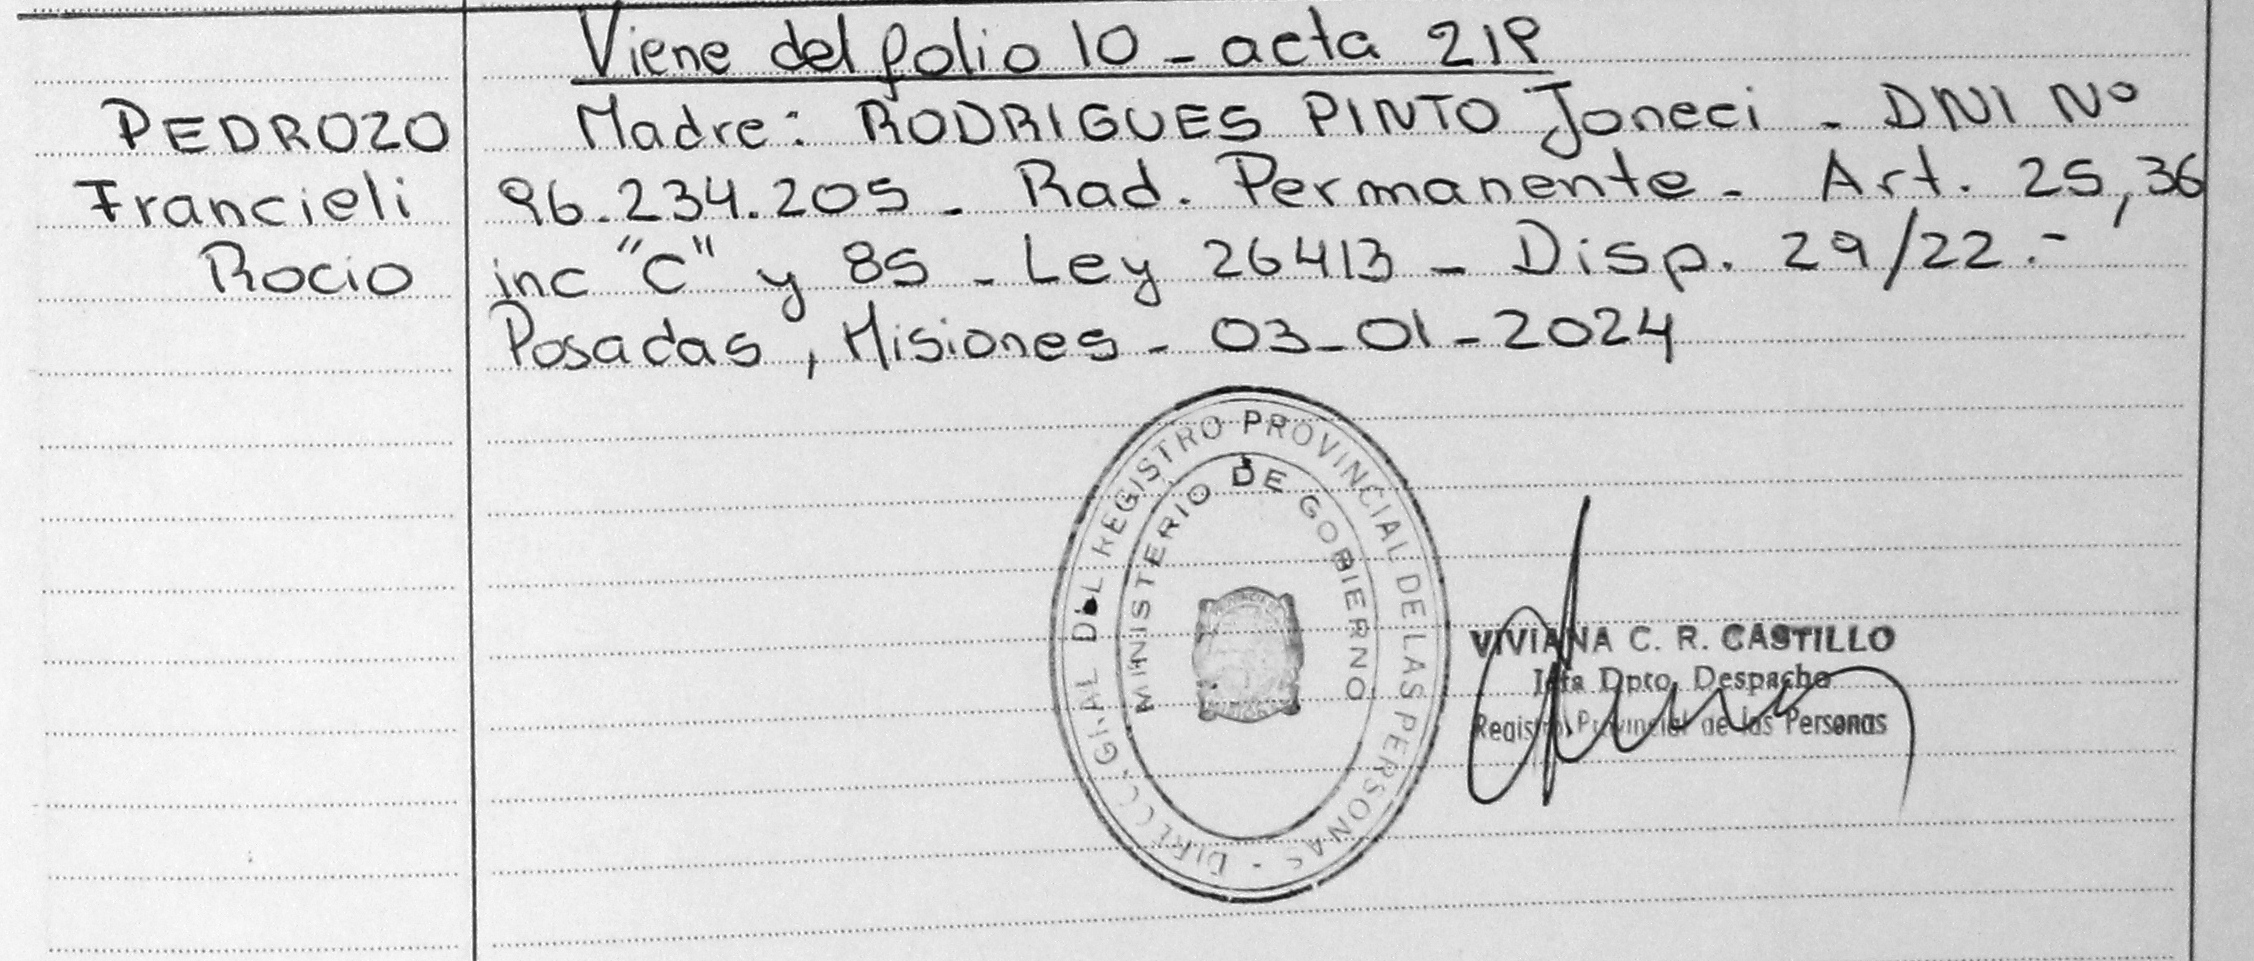 Viene del folio 10 - acta 21P
PEDROZO
Francieli
Rocio
Madre: RODRIGUES PINTO Joneci - DNI Nº
96.234.205 - Rad. Permanente - Art. 25, 36
inc "C" y 85 - Ley 26413 - Disp. 29/22.-
Posadas, Misiones - 03-01-2024
REGISTRO PROVINCIAL DE LAS PERSONAS
MINISTERIO DE GOBIERNO
VIVIANA C. R. CASTILLO
Jefa Dpto. Despacho
Registro Provincial de las Personas